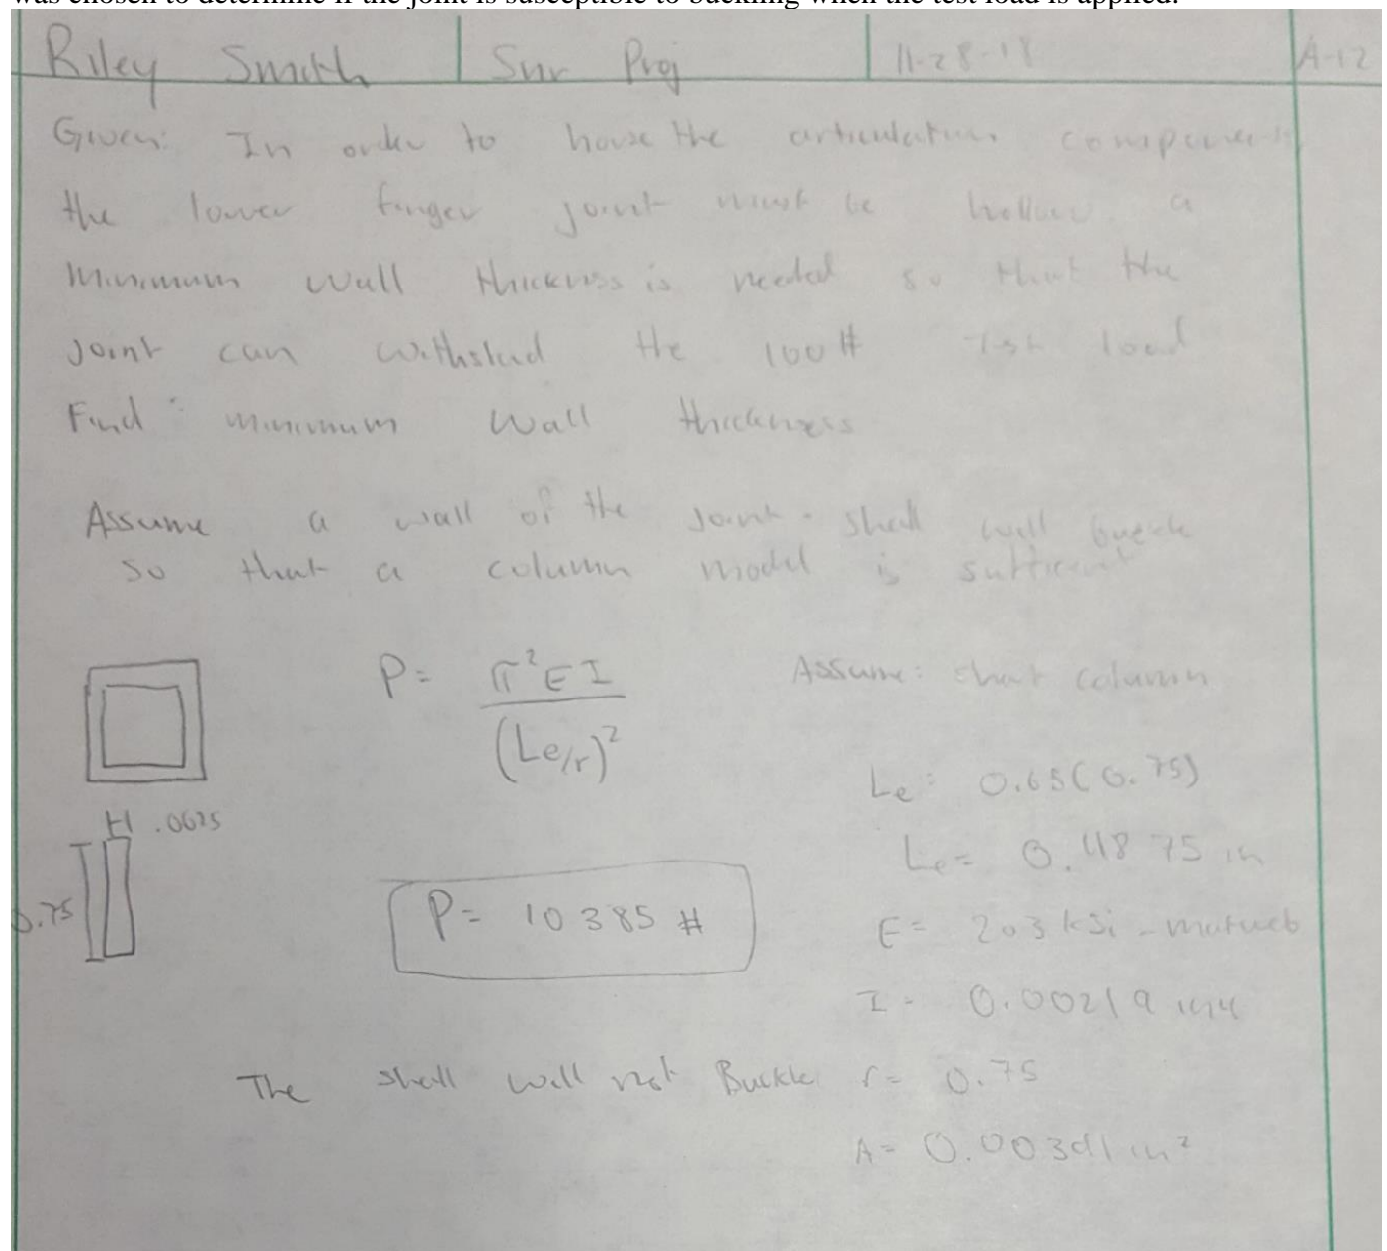 was chosen to determine if the joint is susceptible to buckling when the test load is applied.
Riley Smith Snr Proj 11-28-18 A-12
Given: In order to house the articulation components
the lower finger joint must be hollow. a
Minimum wall thickness is needed so that the
joint can withstad the 100# load
Find: minimum wall thickness
Assume a wall of the joint shell will buckle
so that a column model is sufficient
P= π²EI / (Le/r)² Assume: short column
Le= 0.65(0.75)
H .0625
Le= 0.4875 in
0.75
P= 10385 #
E= 203 ksi - matweb
I= 0.00219 in4
The shell will not Buckle r= 0.75
A= in²